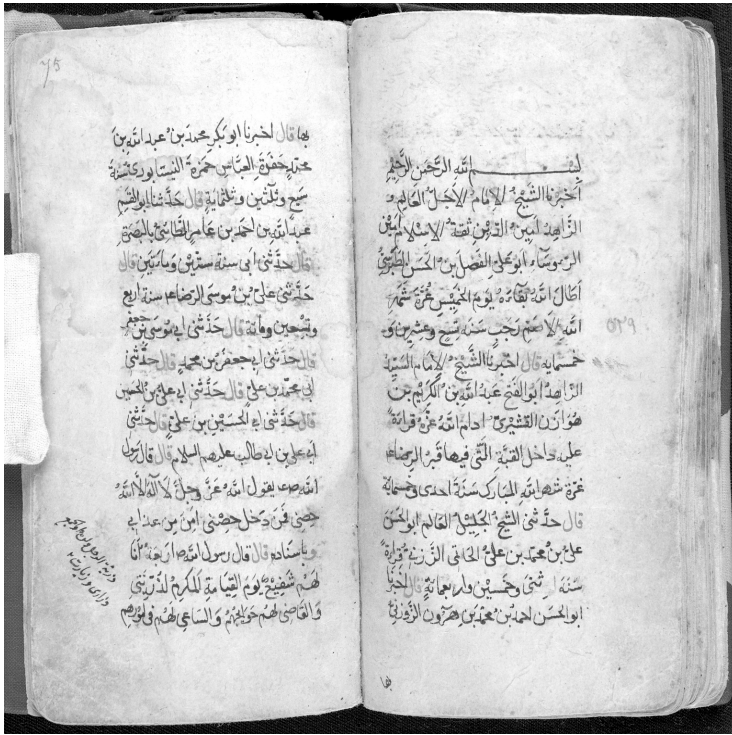 بسم الله الرحمن الرحيم
أخبرنا الشيخ الإمام الأجل العالم و
الزاهد أمين الدين ثقة الإسلام أمين
الرؤساء ابو على الفضل بن الحسن الطبرسى
اطال الله بقاءه يوم الخميس غرة شهر
الله الاصم رجب سنة تسع وعشرين و
خمسمايه قال اخبرنا الشيخ الامام السيد
الزاهد ابو الفتح عبد الله بن الكريم بن
هوازن القشيرى ادام الله عزه قراءة
عليه داخل القبة التى فيها قبر الرضا ع
غرة شهر الله المبارك سنة احدى وخمسماية
قال حدثنى الشيخ الجليل العالم ابو الحسن
على بن محمد بن على الحاتمى الزوزنى قراءة
سنة اثنى وخمسين واربعماية قال اخبرنا
ابو الحسن احمد بن محمد بن هرون الزوزنى
بها
٥٢٩
75
بها قال اخبرنا ابو بكر محمد بن عبد الله بن
محمد حفدة العباس حمزة النيسابورى سنة
سبع وثلثين وثلثماية قال حدثنا ابو القسم
عبد الله بن احمد بن عامر الطائى بالبصرة
قال حدثنى ابى سنة ستين ومأتين قال
حدثنى على بن موسى الرضا ع سنة اربع
وتسعين ومائة قال حدثنى ابى موسى بن جعفر
قال حدثنى ابى جعفر بن محمد قال حدثنى
ابى محمد بن على قال حدثنى ابى على بن الحسين
قال حدثنى ابى الحسين بن على قال حدثنى
ابى على بن ابى طالب عليهم السلام قال قال رسول
الله صلعم يقول الله عز وجل لا اله الا الله
حصنى فمن دخل حصنى امن من عذابى
و باسناده قال قال رسول الله ص اربعة أنا
لهم شفيع يوم القيامة المكرم لذريتى
والقاضى لهم حوائجهم والساعى لهم فى امورهم
ذرية الرجل